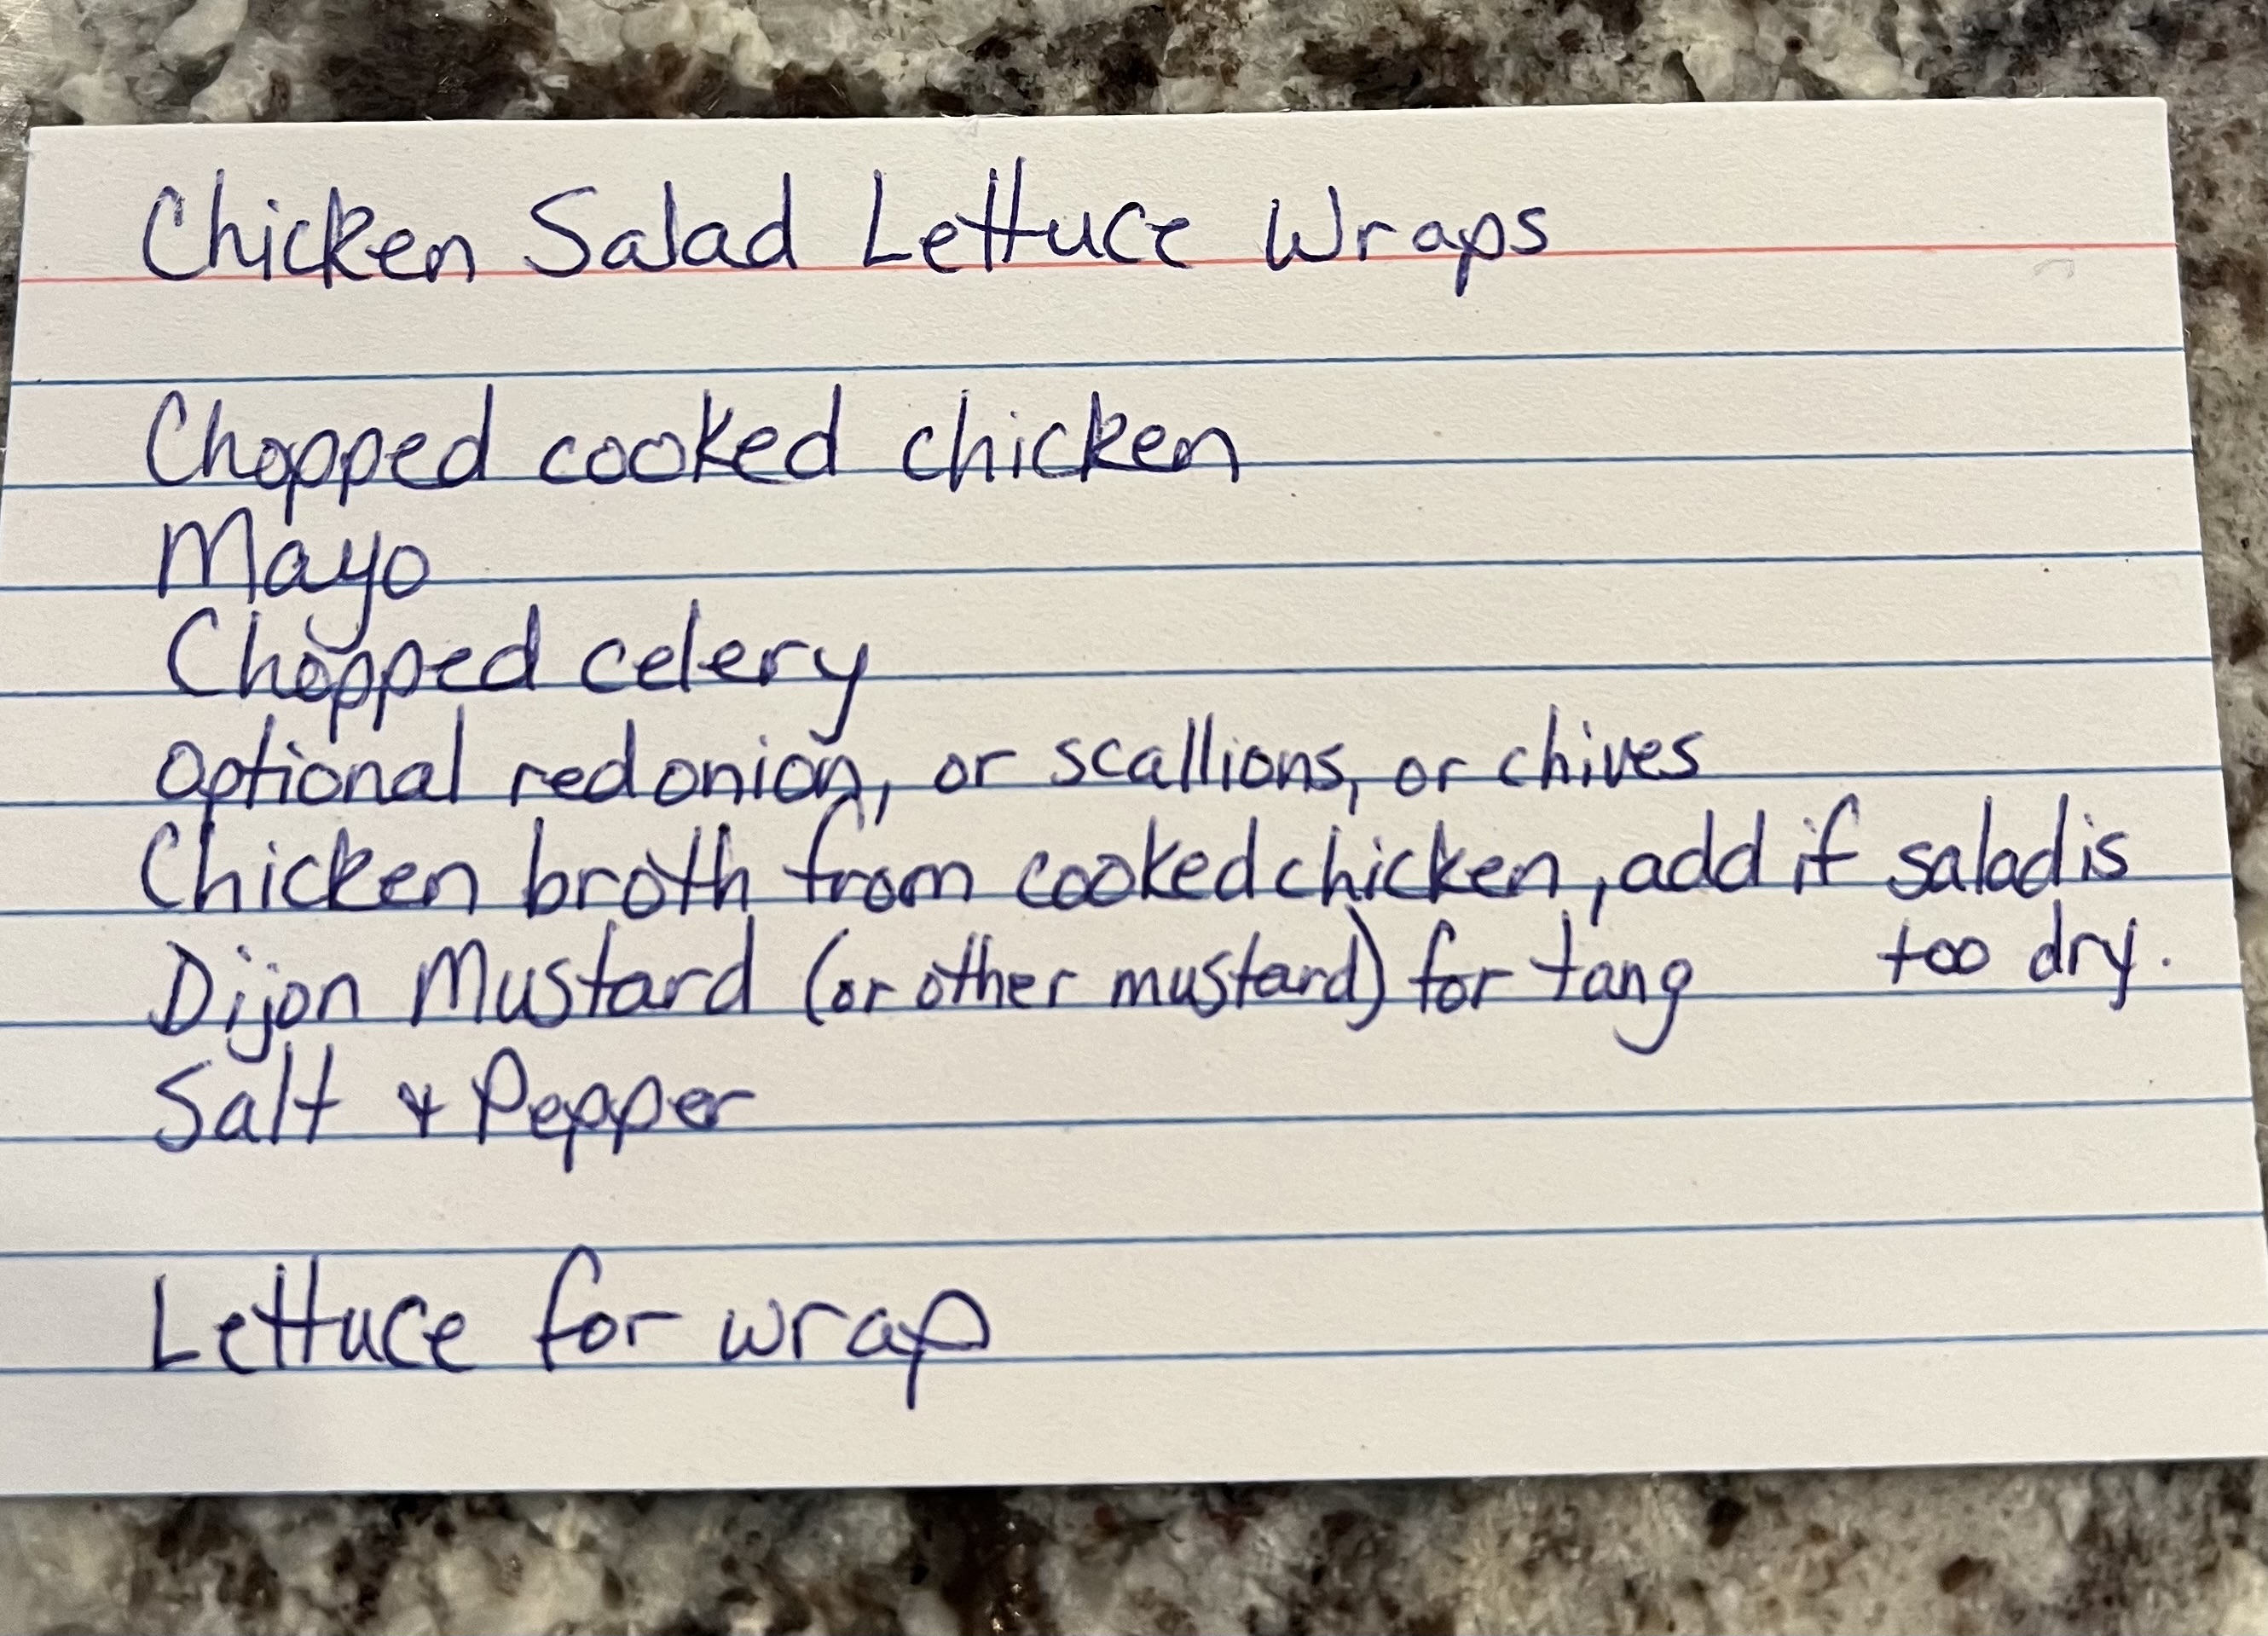 Chicken Salad Lettuce Wraps
Chopped cooked chicken
Mayo
Chopped celery
optional red onion, or scallions, or chives
Chicken broth from cooked chicken, add if salad is
too dry.
Dijon Mustard (or other mustard) for tang
Salt & Pepper
Lettuce for wrap